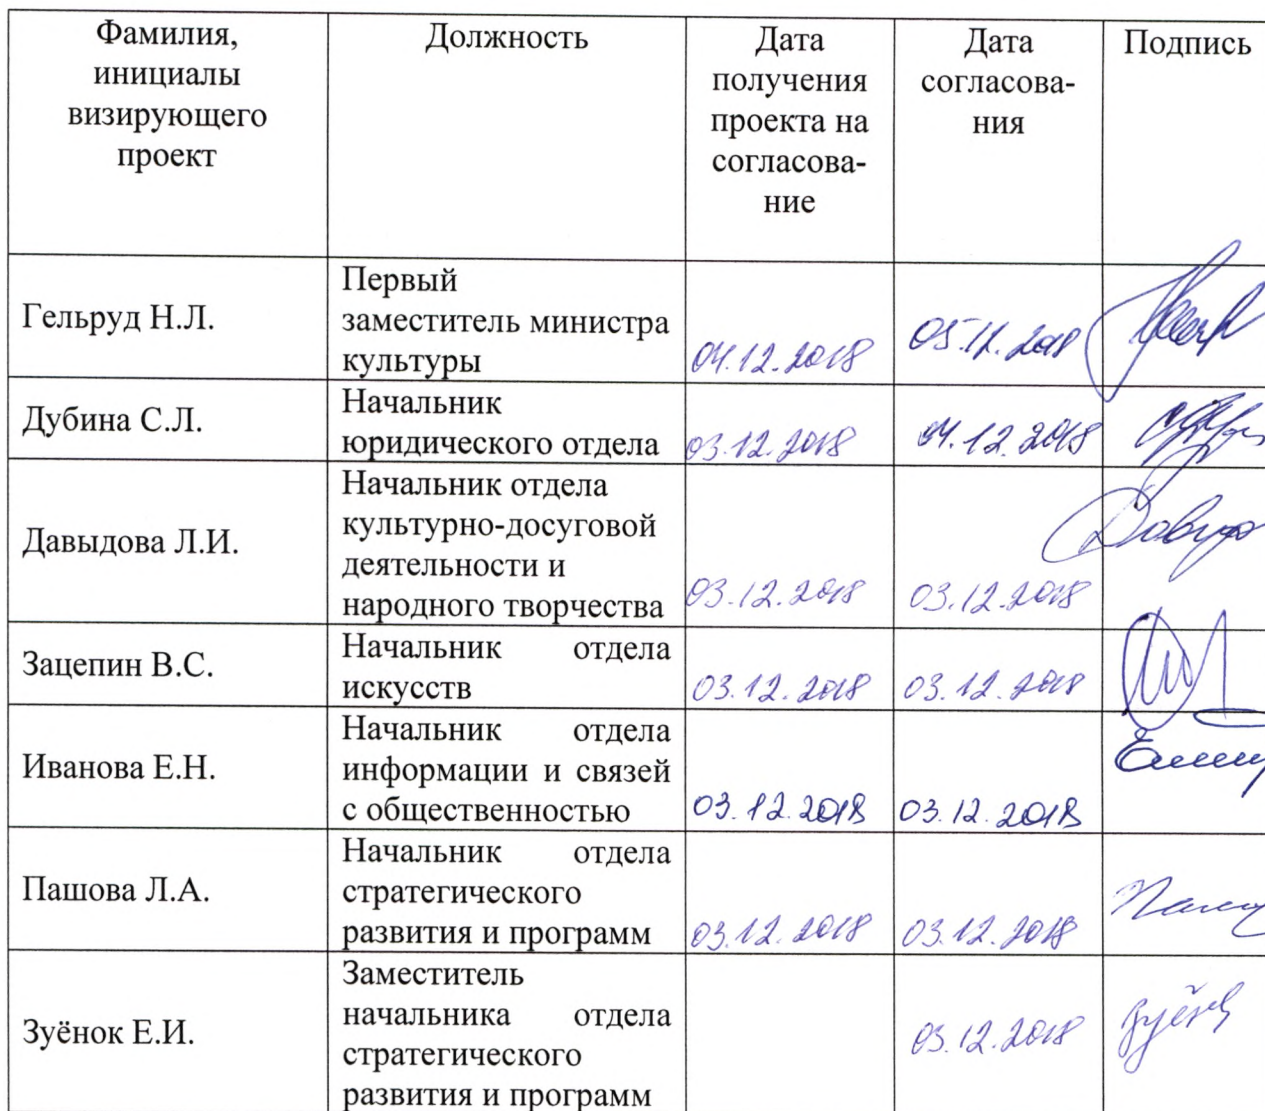 Фамилия,
инициалы
визирующего
проект
Должность
Дата
получения
проекта на
согласова-
ние
Дата
согласова-
ния
Подпись
Гельруд Н.Л.
Первый
заместитель министра
культуры
04.12.2018
05.12.2018
Дубина С.Л.
Начальник
юридического отдела
03.12.2018
04.12.2018
Давыдова Л.И.
Начальник отдела
культурно-досуговой
деятельности и
народного творчества
03.12.2018
03.12.2018
Зацепин В.С.
Начальник отдела
искусств
03.12.2018
03.12.2018
Иванова Е.Н.
Начальник отдела
информации и связей
с общественностью
03.12.2018
03.12.2018
Пашова Л.А.
Начальник отдела
стратегического
развития и программ
03.12.2018
03.12.2018
Зуёнок Е.И.
Заместитель
начальника отдела
стратегического
развития и программ
03.12.2018